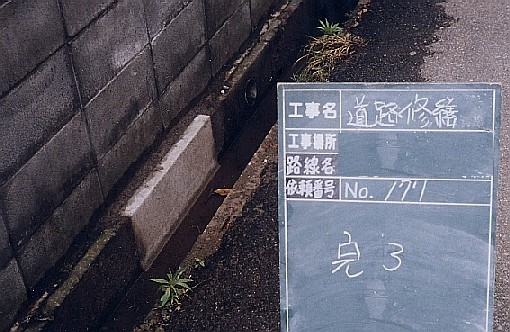 工事名 道路修繕
工事場所
路線名
依頼番号 No. 177
完 3